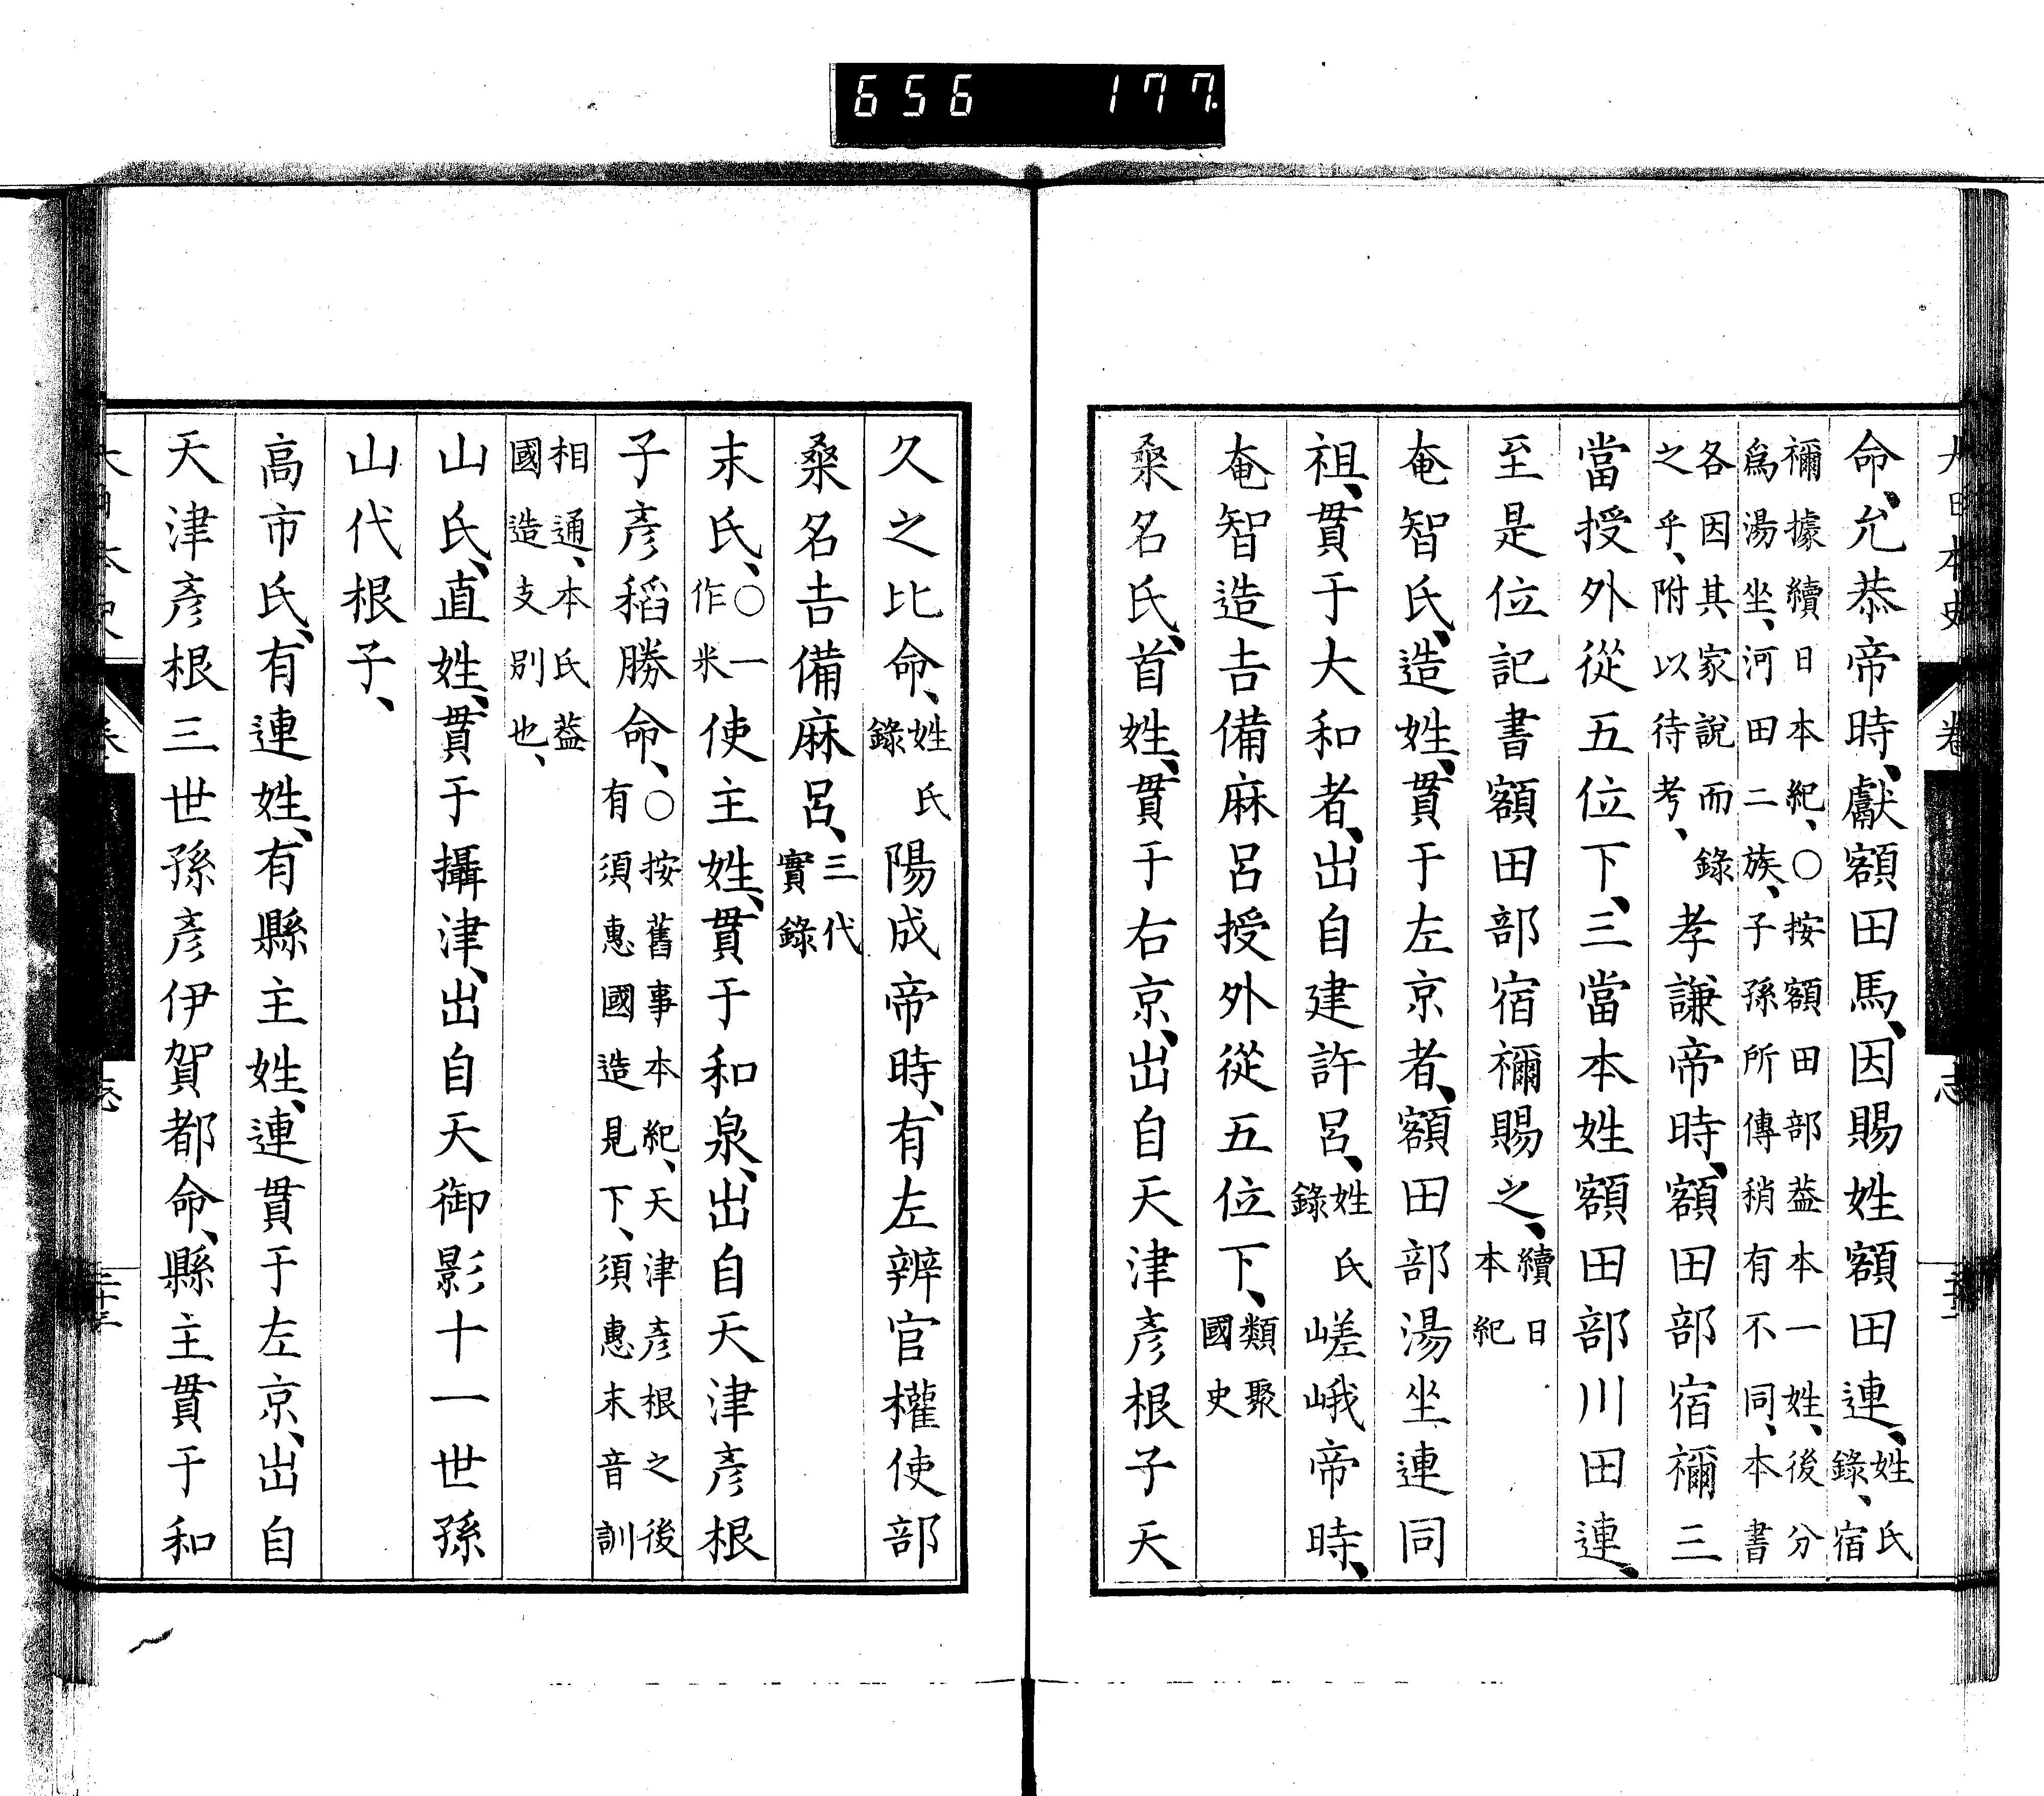 656 177
命、允恭帝時、獻額田馬、因賜姓額田連、姓氏錄、宿
禰據續日本紀、○按額田部蓋本一姓、後分
爲湯坐、河田二族、子孫所傳稍有不同、本書
各因其家說而錄
之乎、附以待考、孝謙帝時、額田部宿禰三
當授外從五位下、三當本姓額田部川田連、
至是位記書額田部宿禰賜之、續日本紀
奄智氏、造姓、貫于左京者、額田部湯坐連同
祖、貫于大和者、出自建許呂、姓氏錄嵯峨帝時、
奄智造吉備麻呂授外從五位下、類聚國史
桑名氏、首姓、貫于右京、出自天津彥根子天
久之比命、姓氏錄陽成帝時、有左辨官權使部
桑名吉備麻呂、三代實錄
末氏、○一作米使主姓、貫于和泉、出自天津彥根
子彥稻勝命、○按舊事本紀、天津彥根之後
有須惠國造見下、須惠末音訓
相通、本氏蓋
國造支別也、
山氏、直姓、貫于攝津、出自天御影十一世孫
山代根子、
高市氏、有連姓、有縣主姓、連貫于左京、出自
天津彥根三世孫彥伊賀都命、縣主貫于和